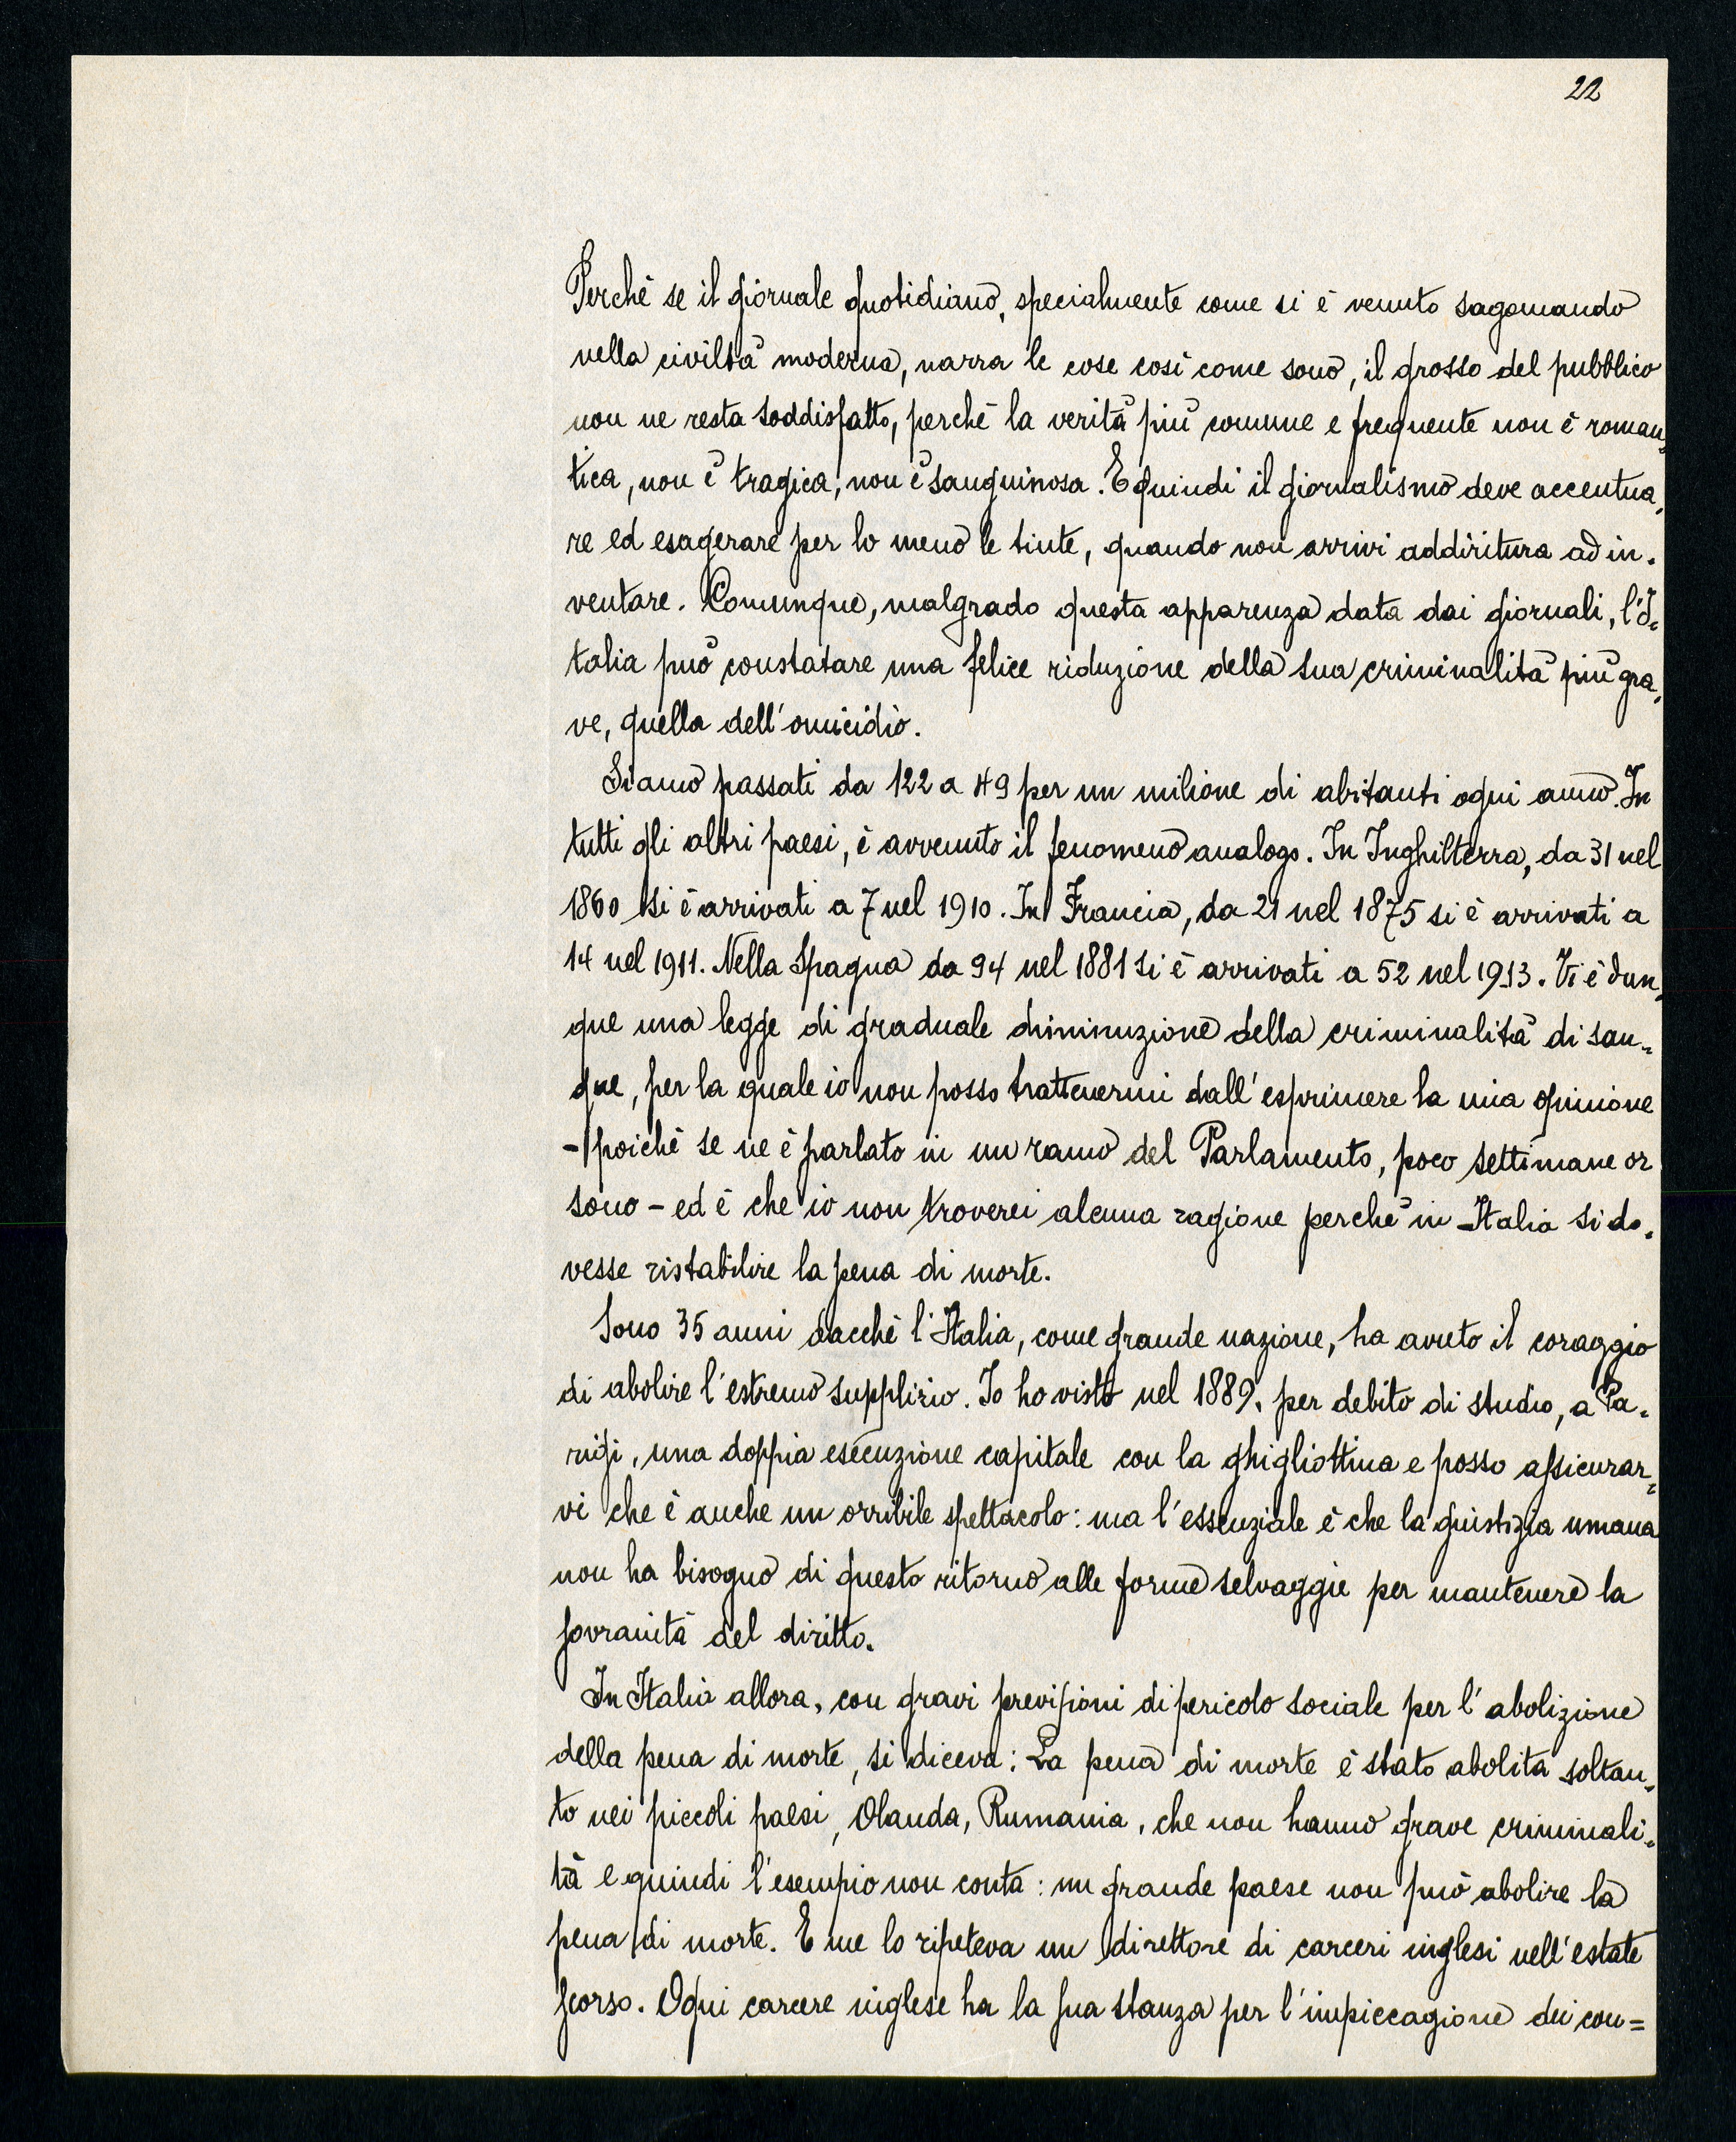 22
Perchè se il giornale quotidiano, specialmente come si è venuto sagomando
nella civiltà moderna, narra le cose così come sono, il grosso del pubblico
non ne resta soddisfatto, perchè la verità più comune e frequente non è roman„
tica, non è tragica, non è sanguinosa. E quindi il giornalismo deve accentua„
re ed esagerare per lo meno le tinte, quando non arrivi addiritura ad in„
ventare. Comunque, malgrado questa apparenza data dai giornali, l'I„
talia può constatare una felice riduzione della sua criminalità più gra„
ve, quella dell'omicidio.
Siamo passati da 122 a 49 per un milione di abitanti ogni anno. In
tutti gli altri paesi, è avvenuto il fenomeno analogo. In Inghilterra, da 31 nel
1860 si è arrivati a 7 nel 1910. In Francia, da 21 nel 1875 si è arrivati a
14 nel 1911. Nella Spagna da 94 nel 1881 si è arrivati a 52 nel 1913. Vi è dun„
que una legge di graduale diminuzione della criminalità di san„
gue, per la quale io non posso trattenermi dall'esprimere la mia opinione
- poichè se ne è parlato in un ramo del Parlamento, poco settimane or
sono - ed è che io non troverei alcuna ragione perchè in Italia si do„
vesse ristabilire la pena di morte.
Sono 35 anni dacchè l'Italia, come grande nazione, ha avuto il coraggio
di abolire l'estremo supplizio. Io ho visto nel 1889, per debito di studio, a Pa„
rigi, una doppia esecuzione capitale con la ghigliottina e posso assicurar„
vi che è anche un orribile spettacolo: ma l'essenziale è che la giustizia umana
non ha bisogno di questo ritorno alle forme selvaggie per mantenere la
sovranità del diritto.
In Italia allora, con gravi previsioni di pericolo sociale per l'abolizione
della pena di morte, si diceva: La pena di morte è stato abolita soltan„
to nei piccoli paesi, Olanda, Rumania, che non hanno grave criminali„
tà e quindi l'esempio non conta: un grande paese non può abolire la
pena di morte. E me lo ripeteva un direttore di carceri inglesi nell'estate
scorso. Ogni carcere inglese ha la sua stanza per l'impiccagione dei con=